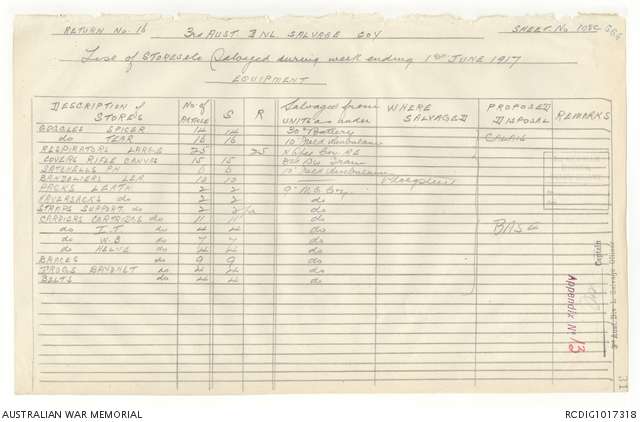 RETURN No. 16 3rd AUST. DNL SALVAGE COY SHEET. No 108C
List of STORES etc Salvaged during week ending 1st JUNE 1917
EQUIPMENT
DESCRIPTION of STORES No. of ARTICLE S R Salvaged from UNITS as under WHERE SALVAGED PROPOSED DISPOSAL REMARKS
GOGGLES SPICER 14 14 30th Battery
do TEAR 16 16 10th Field Ambulance CALAIS
RESPIRATORS LARGE 25 25 Coy RE
COVERS RIFLE CANVAS 15 15 Div Train
SATCHELLS PH 6 6 10th Field Ambulance
BANDOLIERS LEA 10 10
PACKS LEATH 2 2 9th M.G. Coy
HAVERSACKS do 2 2 do
STRAPS SUPPORT do 2 2 do
CARRIERS CARTRIDGE do 11 11 do
do I.T do 4 4 do BASE
do W.B do 7 7 do
do HELVE do 4 4 do
BRACES do 9 9 do
FROGS BAYONET do 4 4 do
BELTS do 4 4 do
Captain
3rd Aust. Div. Salvage Officer
Appendix No 13
31
AUSTRALIAN WAR MEMORIAL
RCDIG1017318